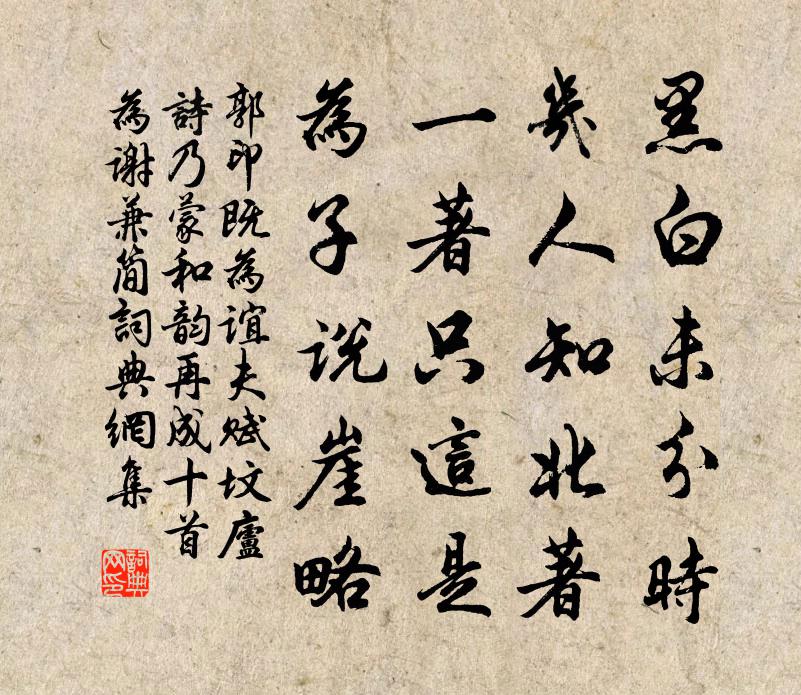 黑白未分時
幾人知此著
一著只這是
為子說崖略
郭印既為誼夫賦墳廬
詩乃蒙和韵再成十首
為謝兼簡詞典網集
詞典
网印